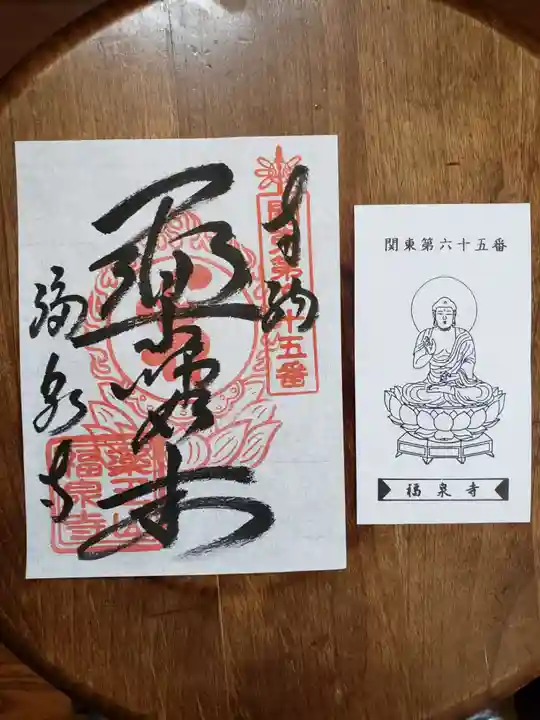 奉納
関東第六十五番
福泉寺
薬王山
福泉寺
関東第六十五番
福泉寺